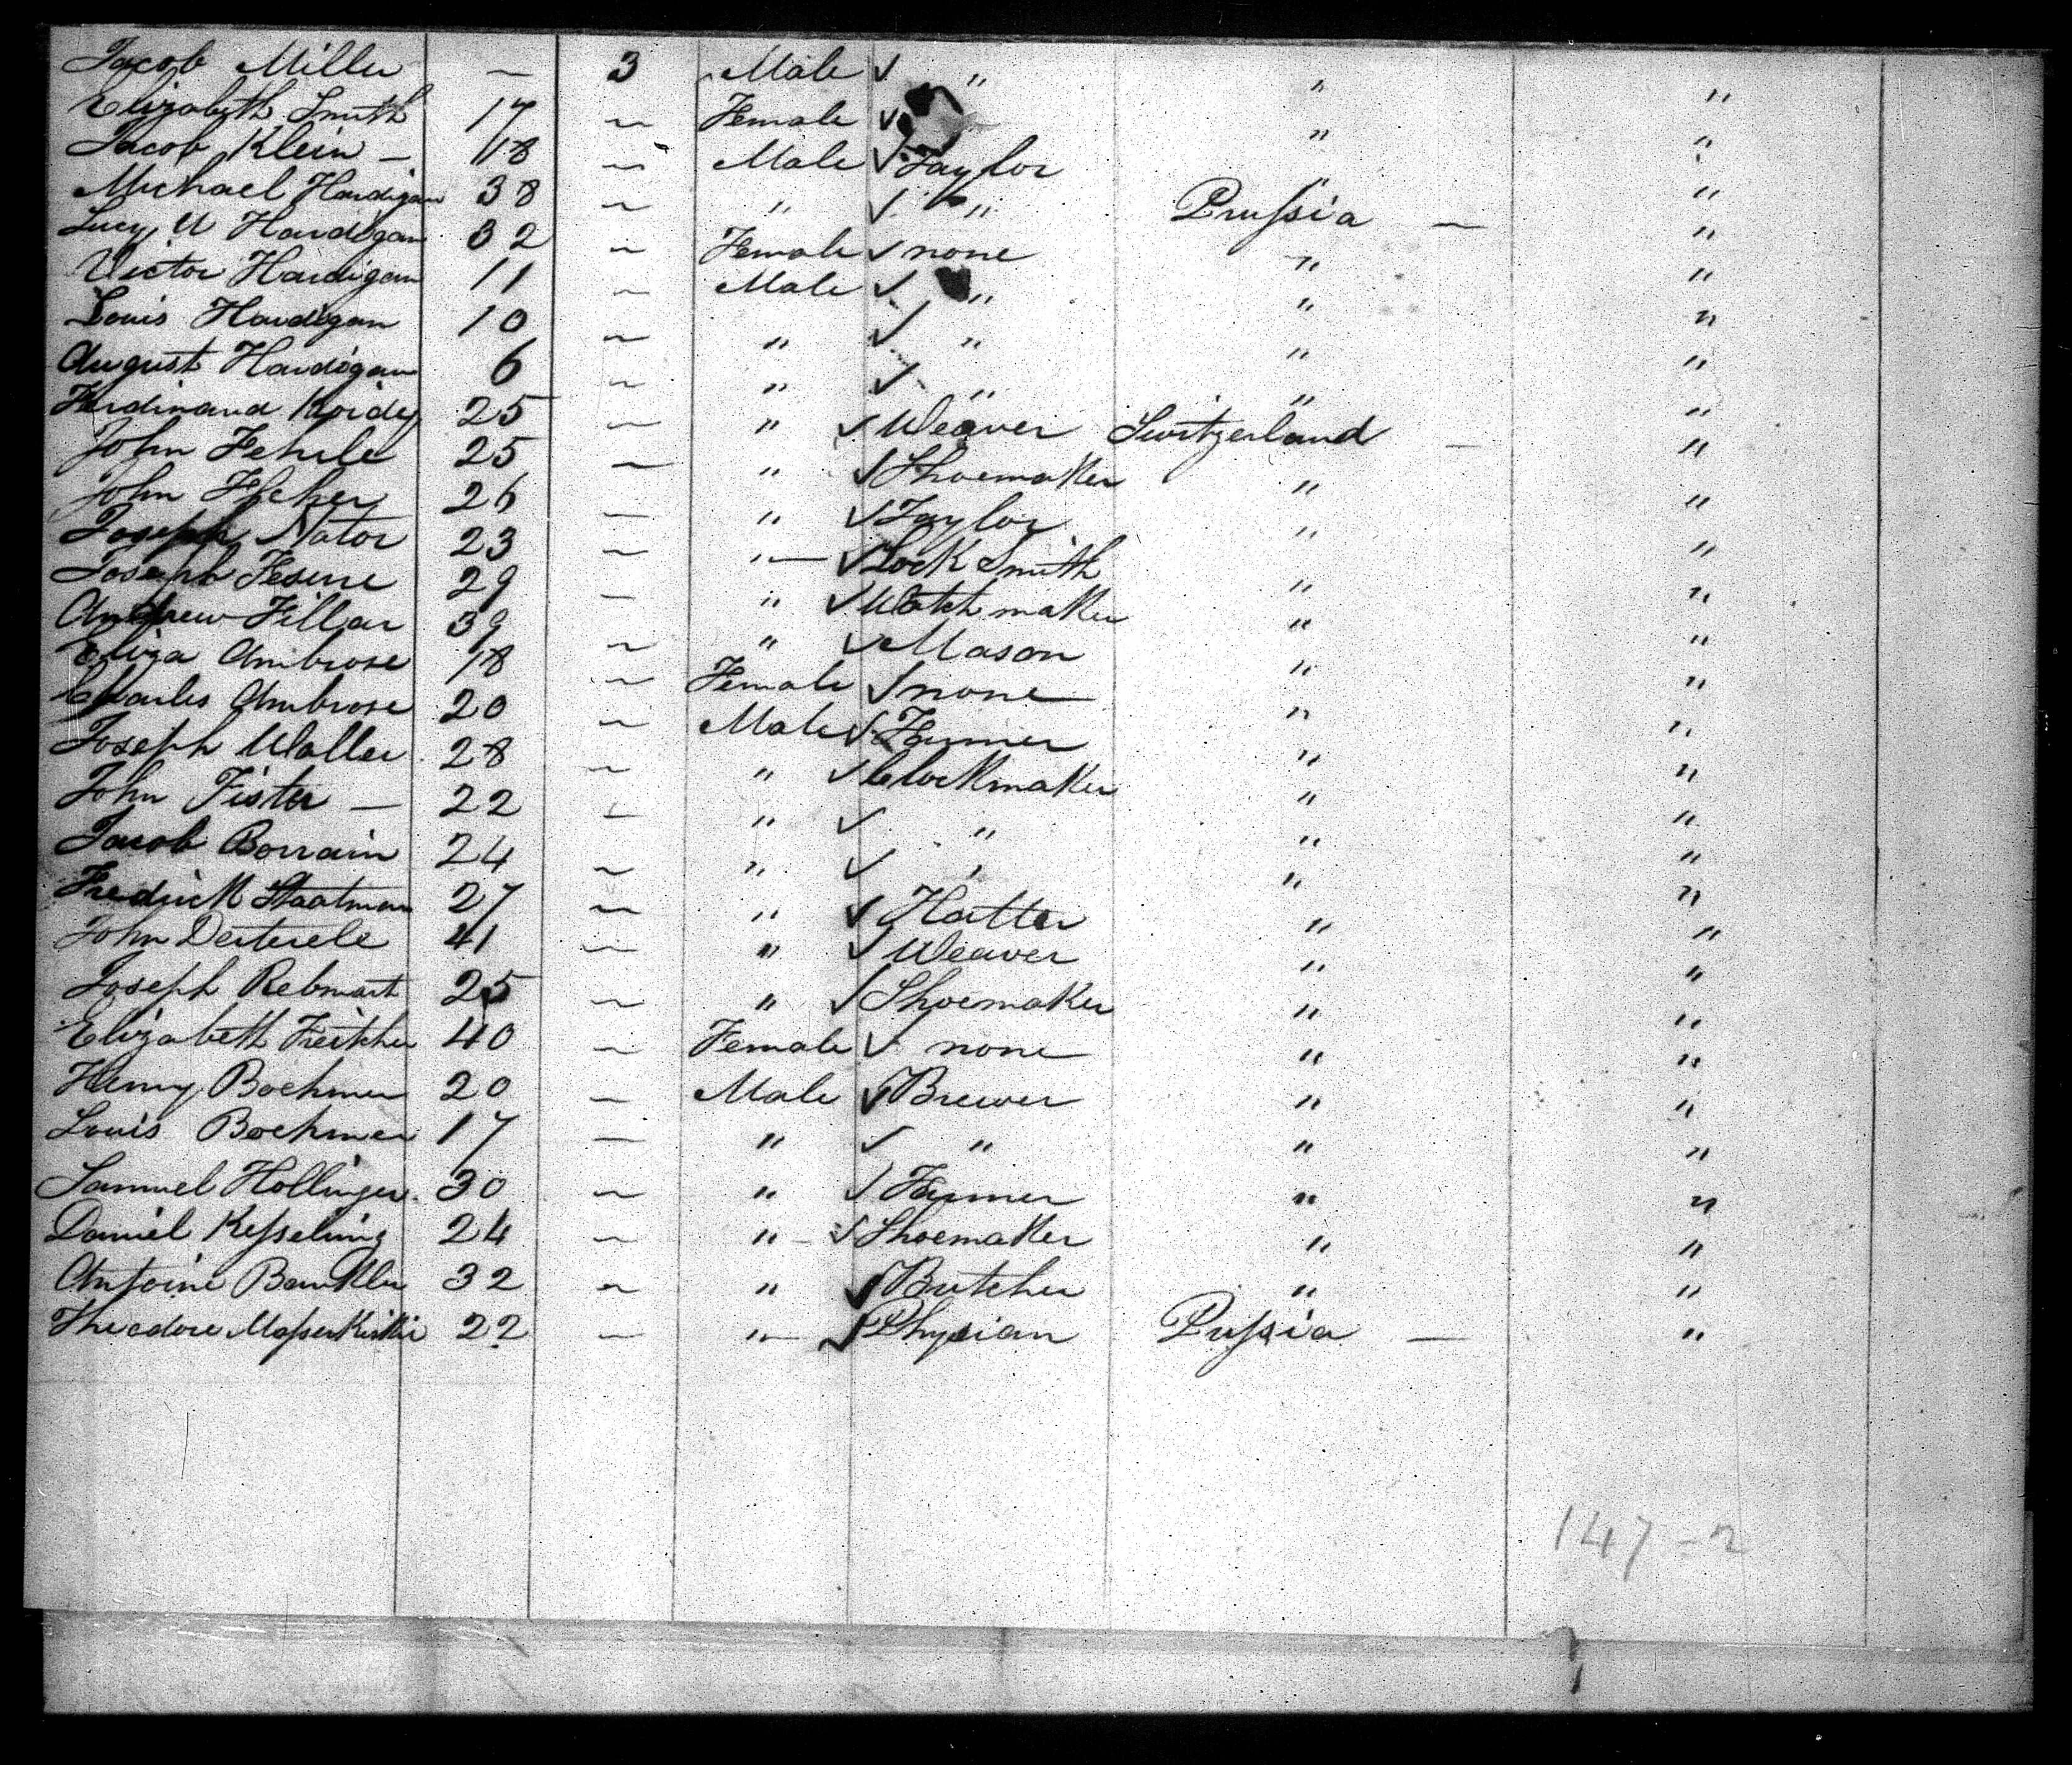 Jacob Miller — 3 Male ✓ " " "
Elizabeth Smith 17 — Female ✓ " "
Jacob Klein — 18 — Male ✓ Taylor " "
Michael Hardigan 38 — " ✓ " Prussia — "
Lucy A Hardigan 32 — Female ✓ none " "
Victor Hardigan 11 — Male ✓ " " "
Louis Hardigan 10 — " ✓ " " "
August Hardigan 6 — " ✓ " " "
Ferdinand 25 — " ✓ Weaver Switzerland — "
John Fehrle 25 — " ✓ Shoemaker " "
John 26 — " ✓ Taylor " "
Joseph Nator 23 — " — ✓ Lock Smith " "
Joseph Fesure 29 — " ✓ Watch maker " "
Andrew Fillar 39 — " ✓ Mason " "
Eliza Ambrose 18 — Female ✓ none " "
Charles Ambrose 20 — Male ✓ Farmer " "
Joseph Waller 28 — " ✓ Clockmaker " "
John Fister — 22 — " ✓ " " "
Jacob Borrain 24 — " ✓ " " "
Fredrick Staatman 27 — " ✓ Hatter " "
John Desterele 41 — " ✓ Weaver " "
Joseph Rebmart 25 — " ✓ Shoemaker " "
Elizabeth 40 — Female ✓ none " "
Henry Boehmer 20 — Male ✓ Brewer " "
Louis Boehmer 17 — " ✓ " " "
Samuel Hollinger 30 — " ✓ Farmer " "
Daniel Kesseling 24 — " — ✓ Shoemaker " "
Antoine 32 — " ✓ Butcher " "
Theodore 22 — " — ✓ Physian Pussia — "
147-2